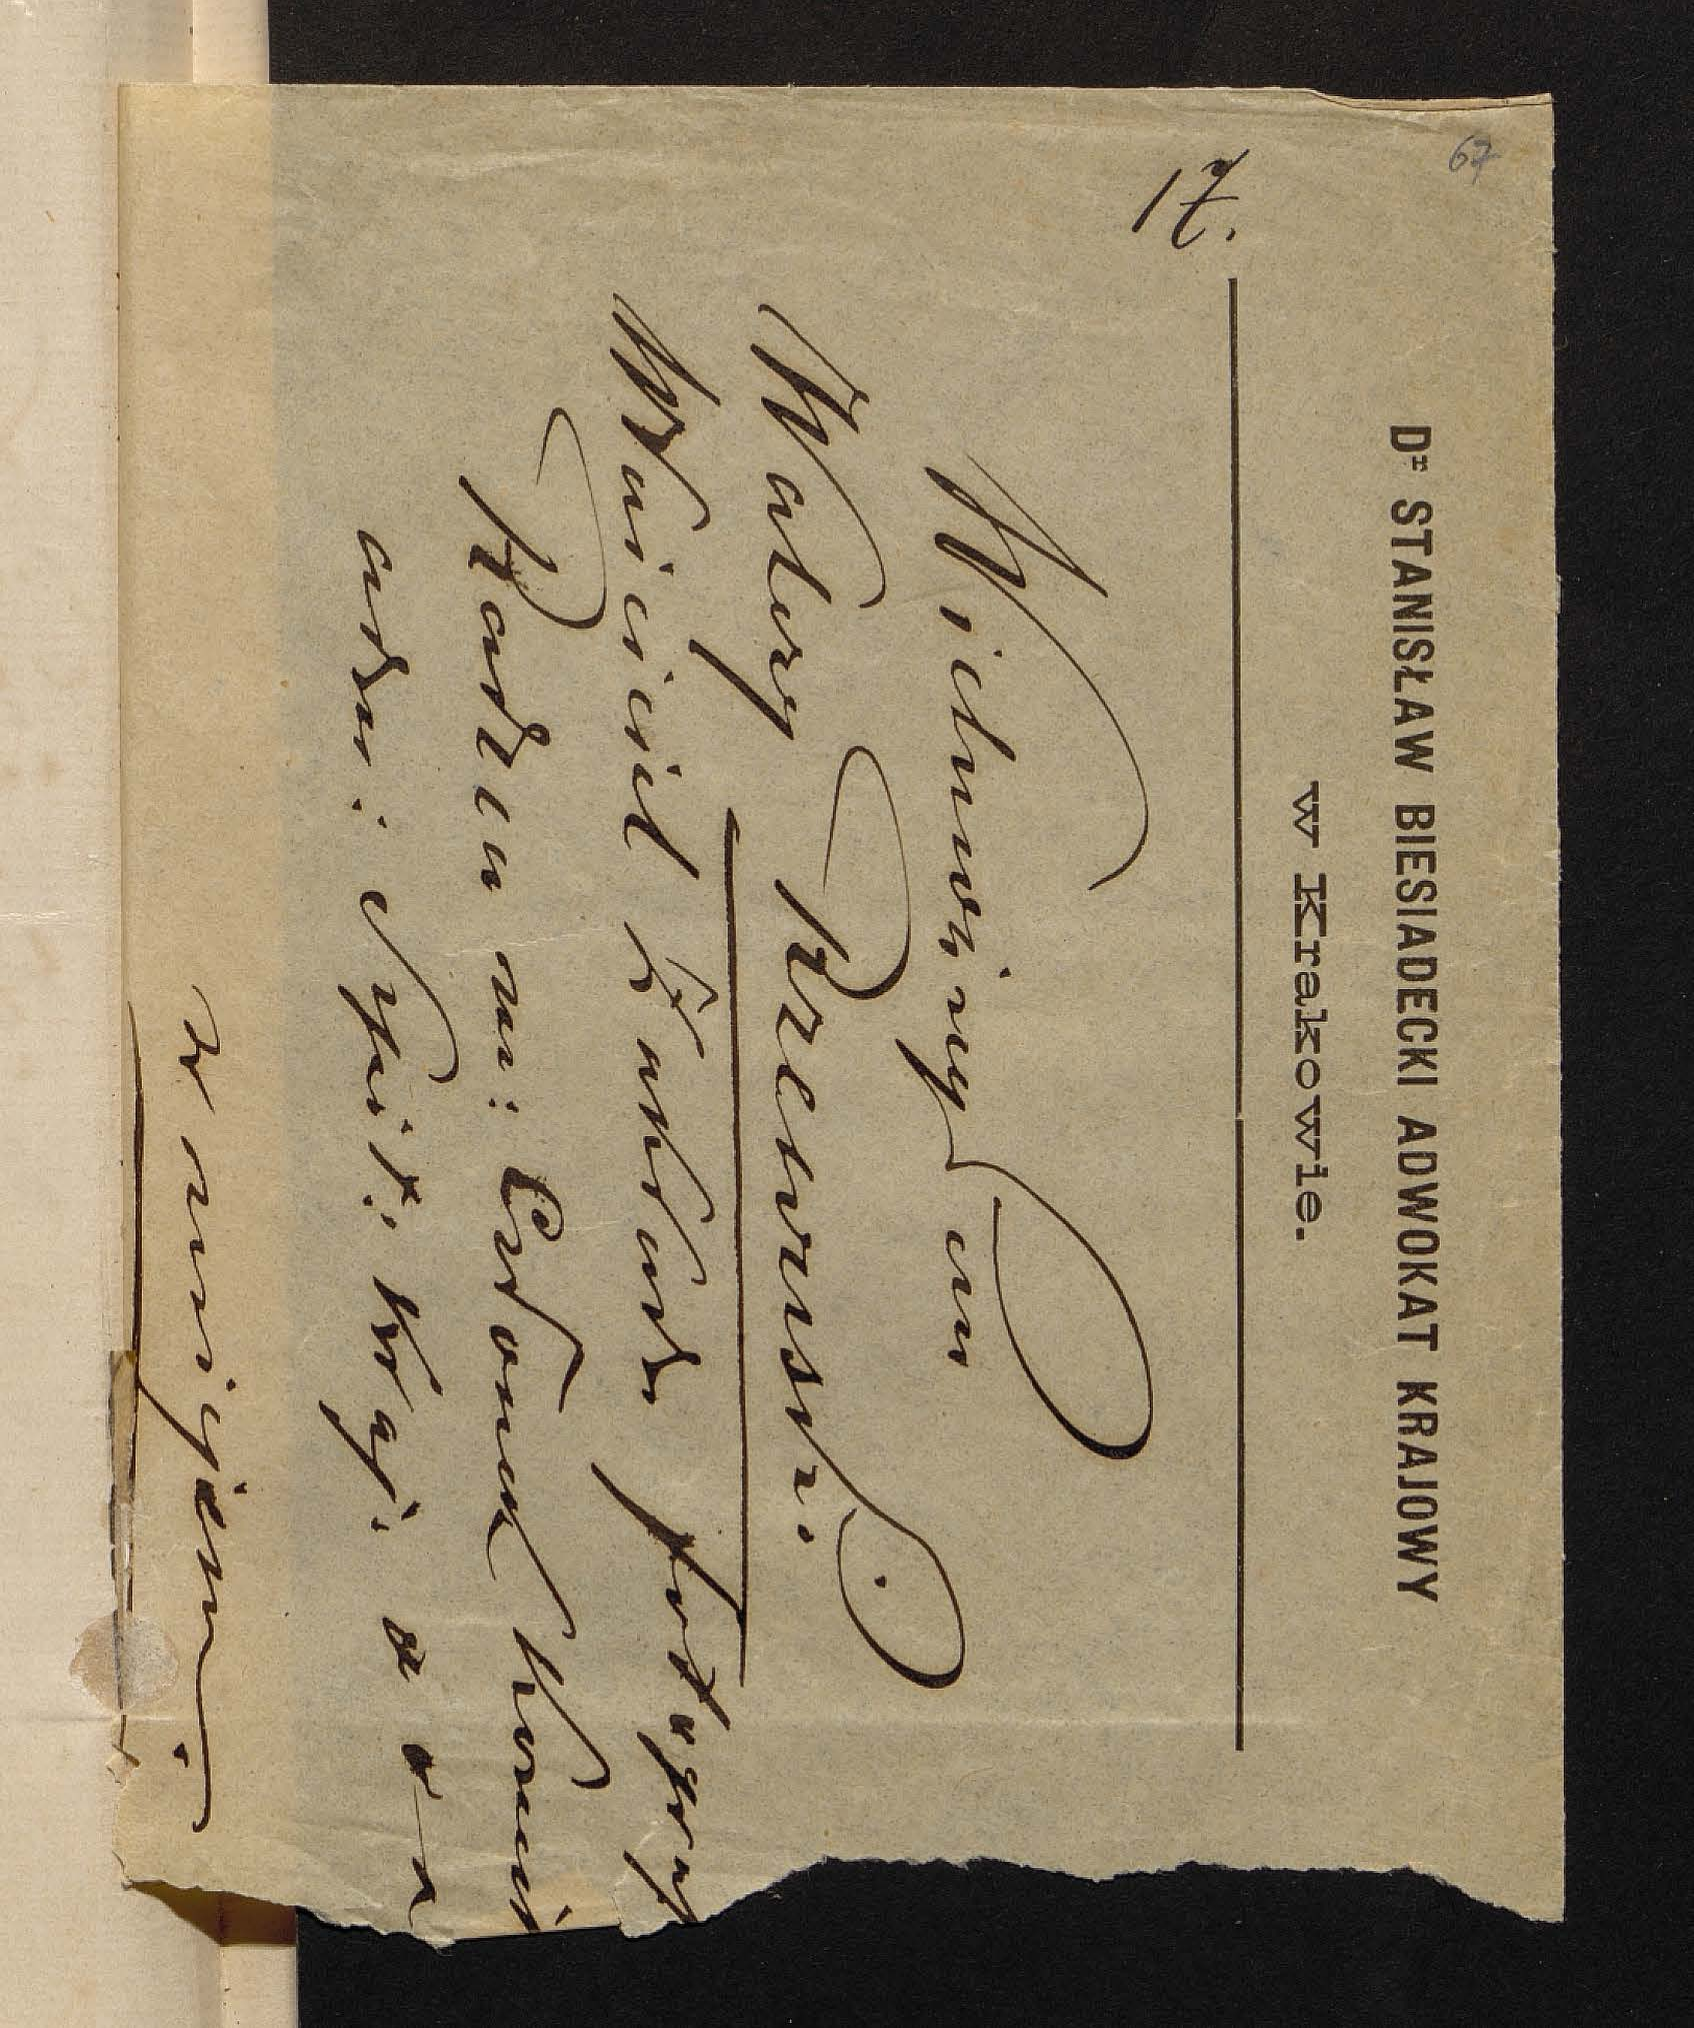 67
Dr STANISŁAW BIESIADECKI ADWOKAT KRAJOWY
w Krakowie.
17.
Wielmożny Pan
Walery Rzewuski.
Właściciel Zakładu fotogra
Radca m: Członek
adm: i t d
w miejscu